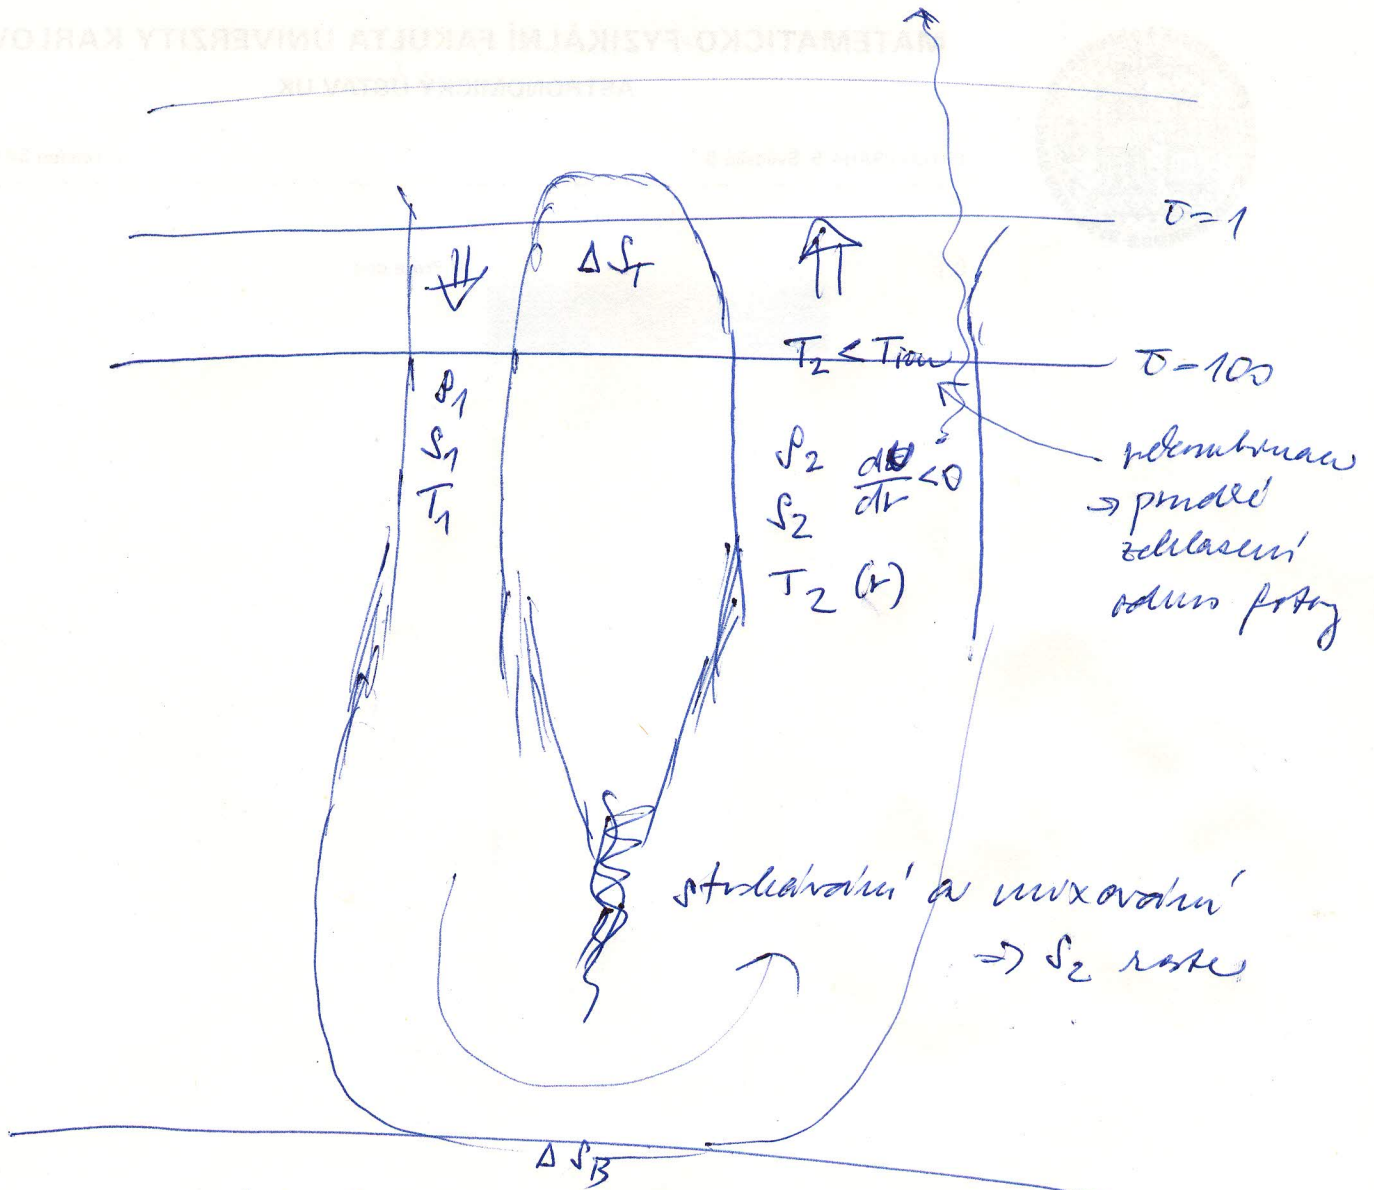 MATEMATICKO-FYZIKÁLNÍ FAKULTA UNIVERZITY KARLOV
ASTRONOMICKÝ ÚSTAV UK
τ=1
ΔS_T
T₂ < T_ion
τ=100
ρ₁
S₁
T₁
ρ₂
S₂
T₂ (r)
<0
rekombinace
⇒ prudké
zchlazení
odnos fotony
a mixování
⇒ S₂ roste
ΔS_B